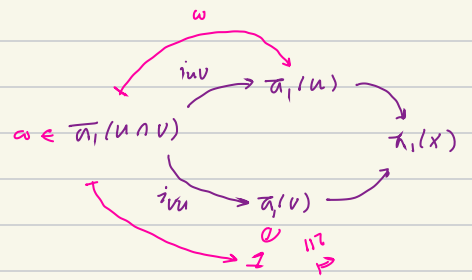 ω
i_uv π₁(u)
ω ∈ π₁(u ∩ v) π₁(x)
i_vu π₁(v)
1